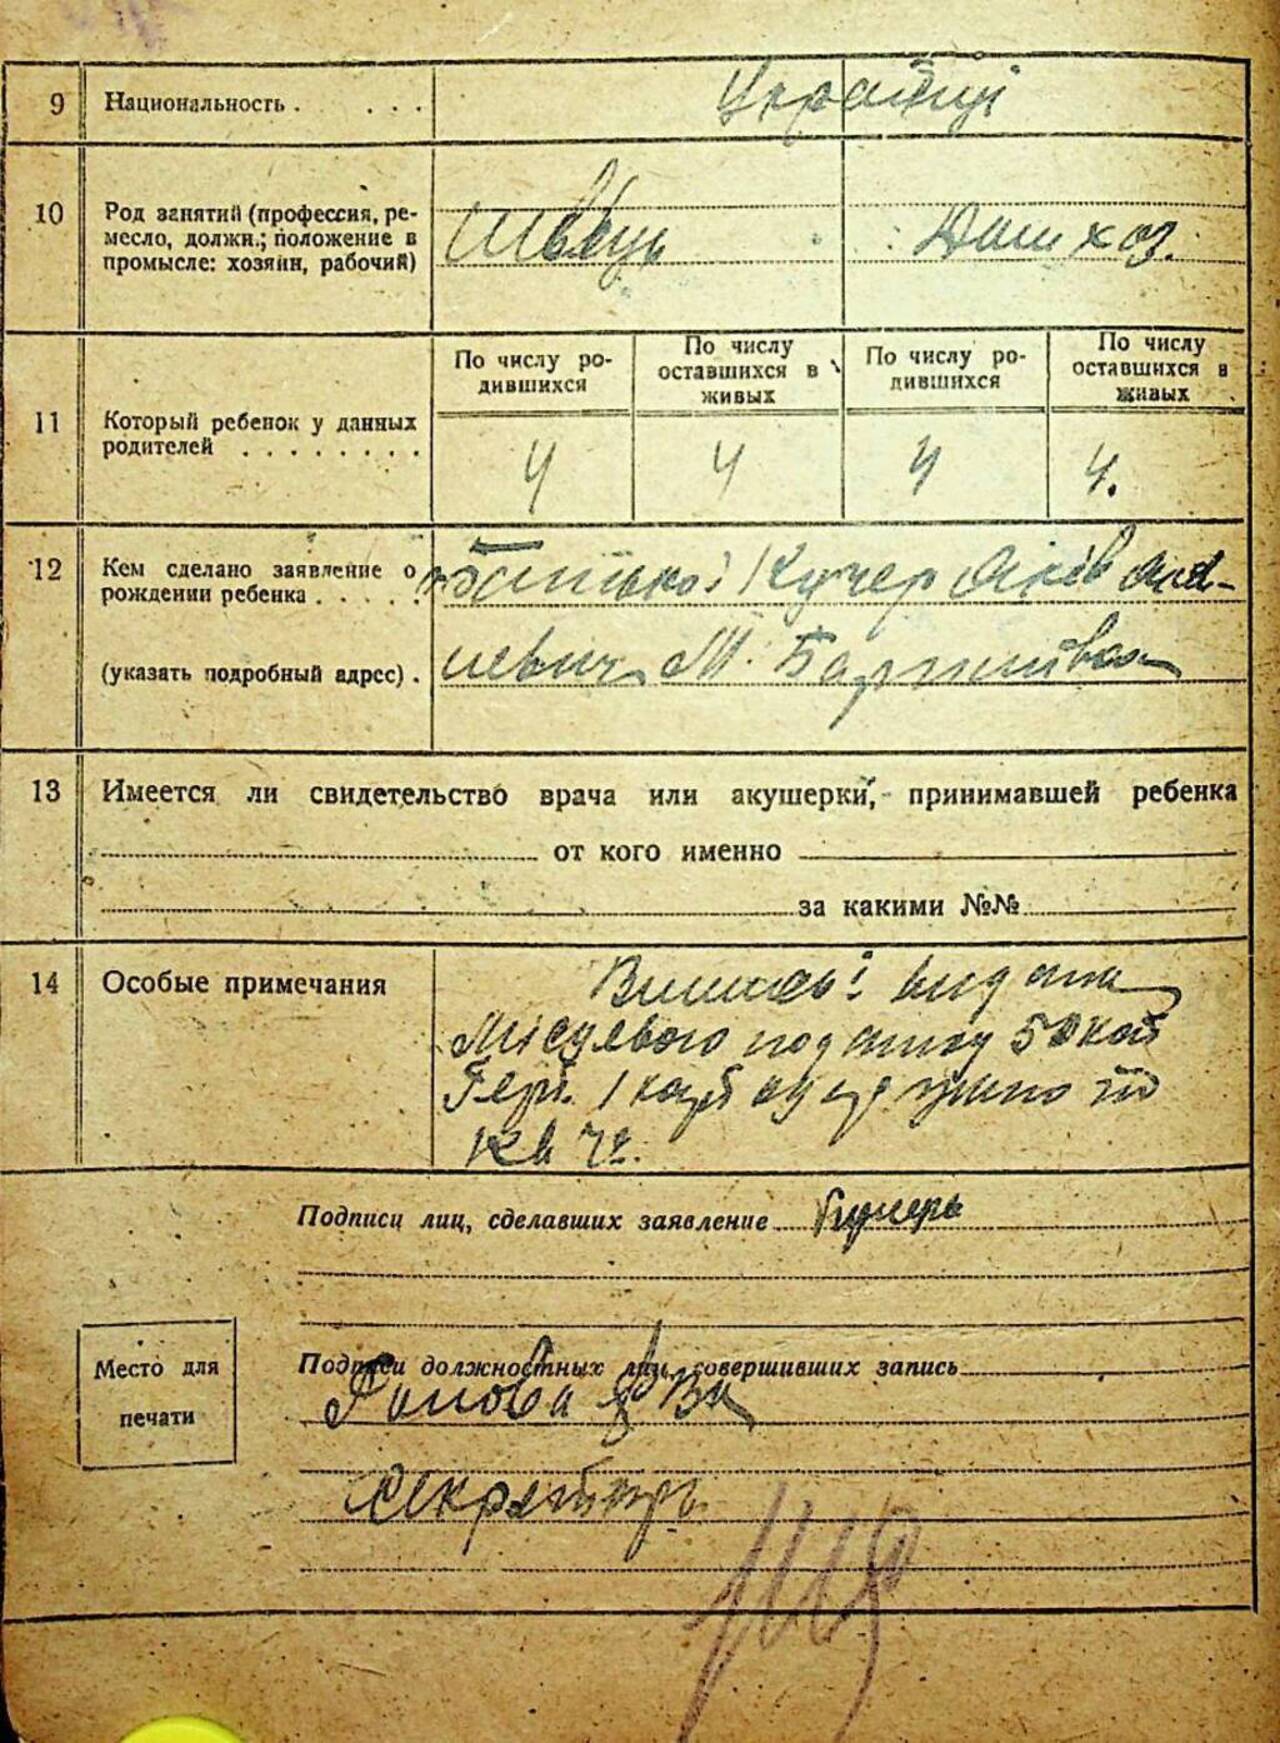 9 Национальность . . . . Українці
10 Род занятий (профессия, ре-
месло, должн.; положение в
промысле: хозяин, рабочий)
Швець Домхоз.
11 Который ребенок у данных
родителей . . . . . . . .
По числу ро-
дившихся
По числу
оставшихся в
живых
По числу ро-
дившихся
По числу
оставшихся в
живых
4 4 4 4.
12 Кем сделано заявление о
рождении ребенка . . . .
(указать подробный адрес) .
Кучер Яків
М.
13 Имеется ли свидетельство врача или акушерки, принимавшей ребенка
от кого именно
за какими №№
14 Особые примечания
видана
Місцевого 50 коп
Герб. 1 карб одержано по
кв
Подписи лиц, сделавших заявление Кучерь
Место для
печати
Подписи должностных лиц, совершивших запись
Голова
Секретарь